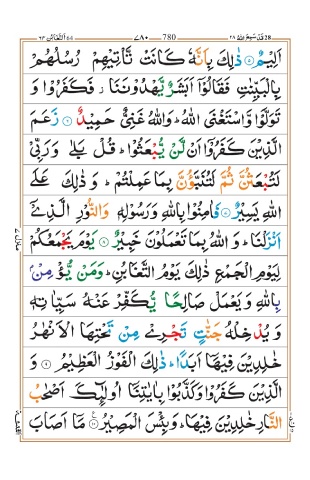 قد سمع الله ٢٨ 28 780 ٧٨٠ التغابن ٦٤ 64
اَلِيْمٌ ۝ ذٰلِكَ بِاَنَّهٗ كَانَتْ تَّاْتِيْهِمْ رُسُلُهُمْ
بِالْبَيِّنٰتِ فَقَالُوْۤا اَبَشَرٌ يَّهْدُوْنَنَا ز فَكَفَرُوْا وَ
تَوَلَّوْا وَّاسْتَغْنَى اللّٰهُ ؕ وَاللّٰهُ غَنِيٌّ حَمِيْدٌ ۝ زَعَمَ
الَّذِيْنَ كَفَرُوْۤا اَنْ لَّنْ يُّبْعَثُوْا ؕ قُلْ بَلٰى وَرَبِّيْ
لَتُبْعَثُنَّ ثُمَّ لَتُنَبَّؤُنَّ بِمَا عَمِلْتُمْ ؕ وَ ذٰلِكَ عَلَى
اللّٰهِ يَسِيْرٌ ۝ فَاٰمِنُوْا بِاللّٰهِ وَرَسُوْلِهٖ وَالنُّوْرِ الَّذِيْۤ
اَنْزَلْنَا ؕ وَ اللّٰهُ بِمَا تَعْمَلُوْنَ خَبِيْرٌ ۝ يَوْمَ يَجْمَعُكُمْ
لِيَوْمِ الْجَمْعِ ذٰلِكَ يَوْمُ التَّغَابُنِ ؕ وَمَنْ يُّؤْمِنْۢ
بِاللّٰهِ وَيَعْمَلْ صَالِحًا يُّكَفِّرْ عَنْهُ سَيِّاٰتِهٖ
وَ يُدْخِلْهُ جَنّٰتٍ تَجْرِيْ مِنْ تَحْتِهَا الْاَنْهٰرُ
خٰلِدِيْنَ فِيْهَاۤ اَبَدًا ؕ ذٰلِكَ الْفَوْزُ الْعَظِيْمُ ۝ وَ
الَّذِيْنَ كَفَرُوْا وَكَذَّبُوْا بِاٰيٰتِنَاۤ اُولٰٓئِكَ اَصْحٰبُ
النَّارِ خٰلِدِيْنَ فِيْهَا ؕ وَبِئْسَ الْمَصِيْرُ ۝ مَاۤ اَصَابَ